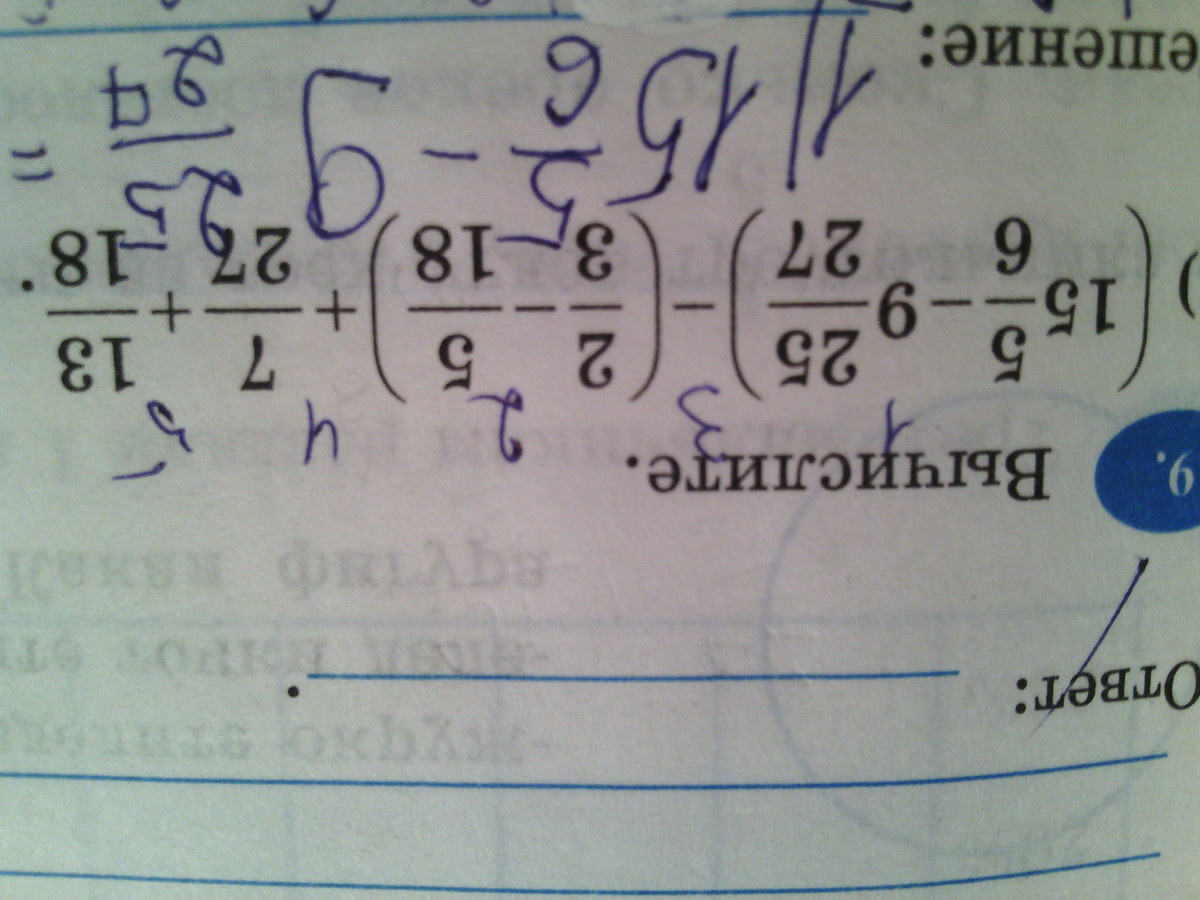 Ответ: .
9. Вычислите.
1 3 2 4 5
) (15 5/6 − 9 25/27) − (2/3 − 5/18) + 7/27 + 13/18.
ешение:
1) 15 5/6 − 9 25/27 =